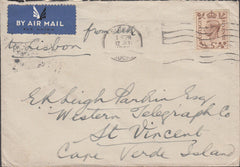 BY AIR MAIL
from
to Lisbon
Leigh Parkin Esq
Western Telegraph Co
St Vincent
Cape Verde Island